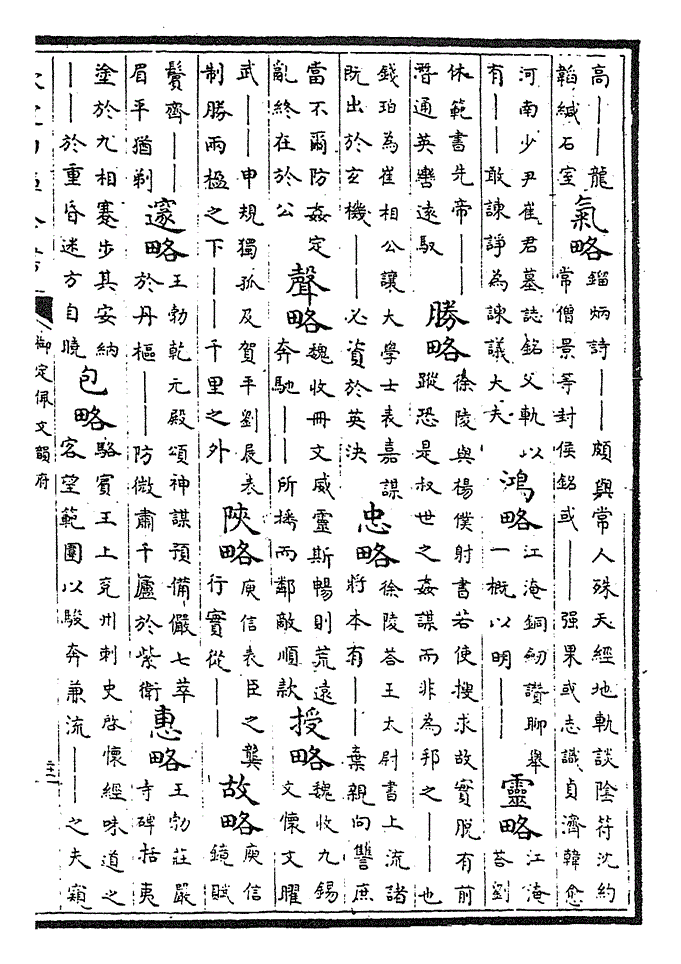 高——龍韜緘石室 氣略 錙炳詩——頗與常人殊天經地軌談陰符沈約常僧景等封侯銘或——强果或志識貞濟韓愈
河南少尹崔君墓誌銘父軌以有——敢諫諍為諫議大夫 鴻略 江淹銅劒讚聊舉一概以明—— 靈略 江淹荅劉
休範書先帝——潛通英轡遠馭 勝略 徐陵與楊僕射書若使搜求故實脫有前蹤恐是叔世之姦謀而非為邦之——也
錢珀為崔相公讓大學士表嘉謀既出於玄機——必資於英決 忠略 徐陵荅王太尉書上流諸將本有——棄親向讐庶
當不爾防姦定亂終在於公 聲略 魏收冊文威靈斯暢則荒遠奔馳——所播而鄰敵順款 授略 魏收九錫文懷文曜
武——申規獨孤及賀平劉展表制勝兩楹之下——千里之外 陜略 庾信表臣之龔行實從—— 故略 庾信鏡賦
鬢齊——眉平猶剃 邃略 王勃乾元殿頌神謀預備儼七萃於丹樞——防微肅千廬於紫衛 惠略 王勃莊嚴寺碑括夷
塗於九相蹇步其安納——於重昏迷方自曉 包略 駱賓王上兖州刺史啓懷經味道之客望範圍以駿奔兼流——之夫窺
御定佩文韻府